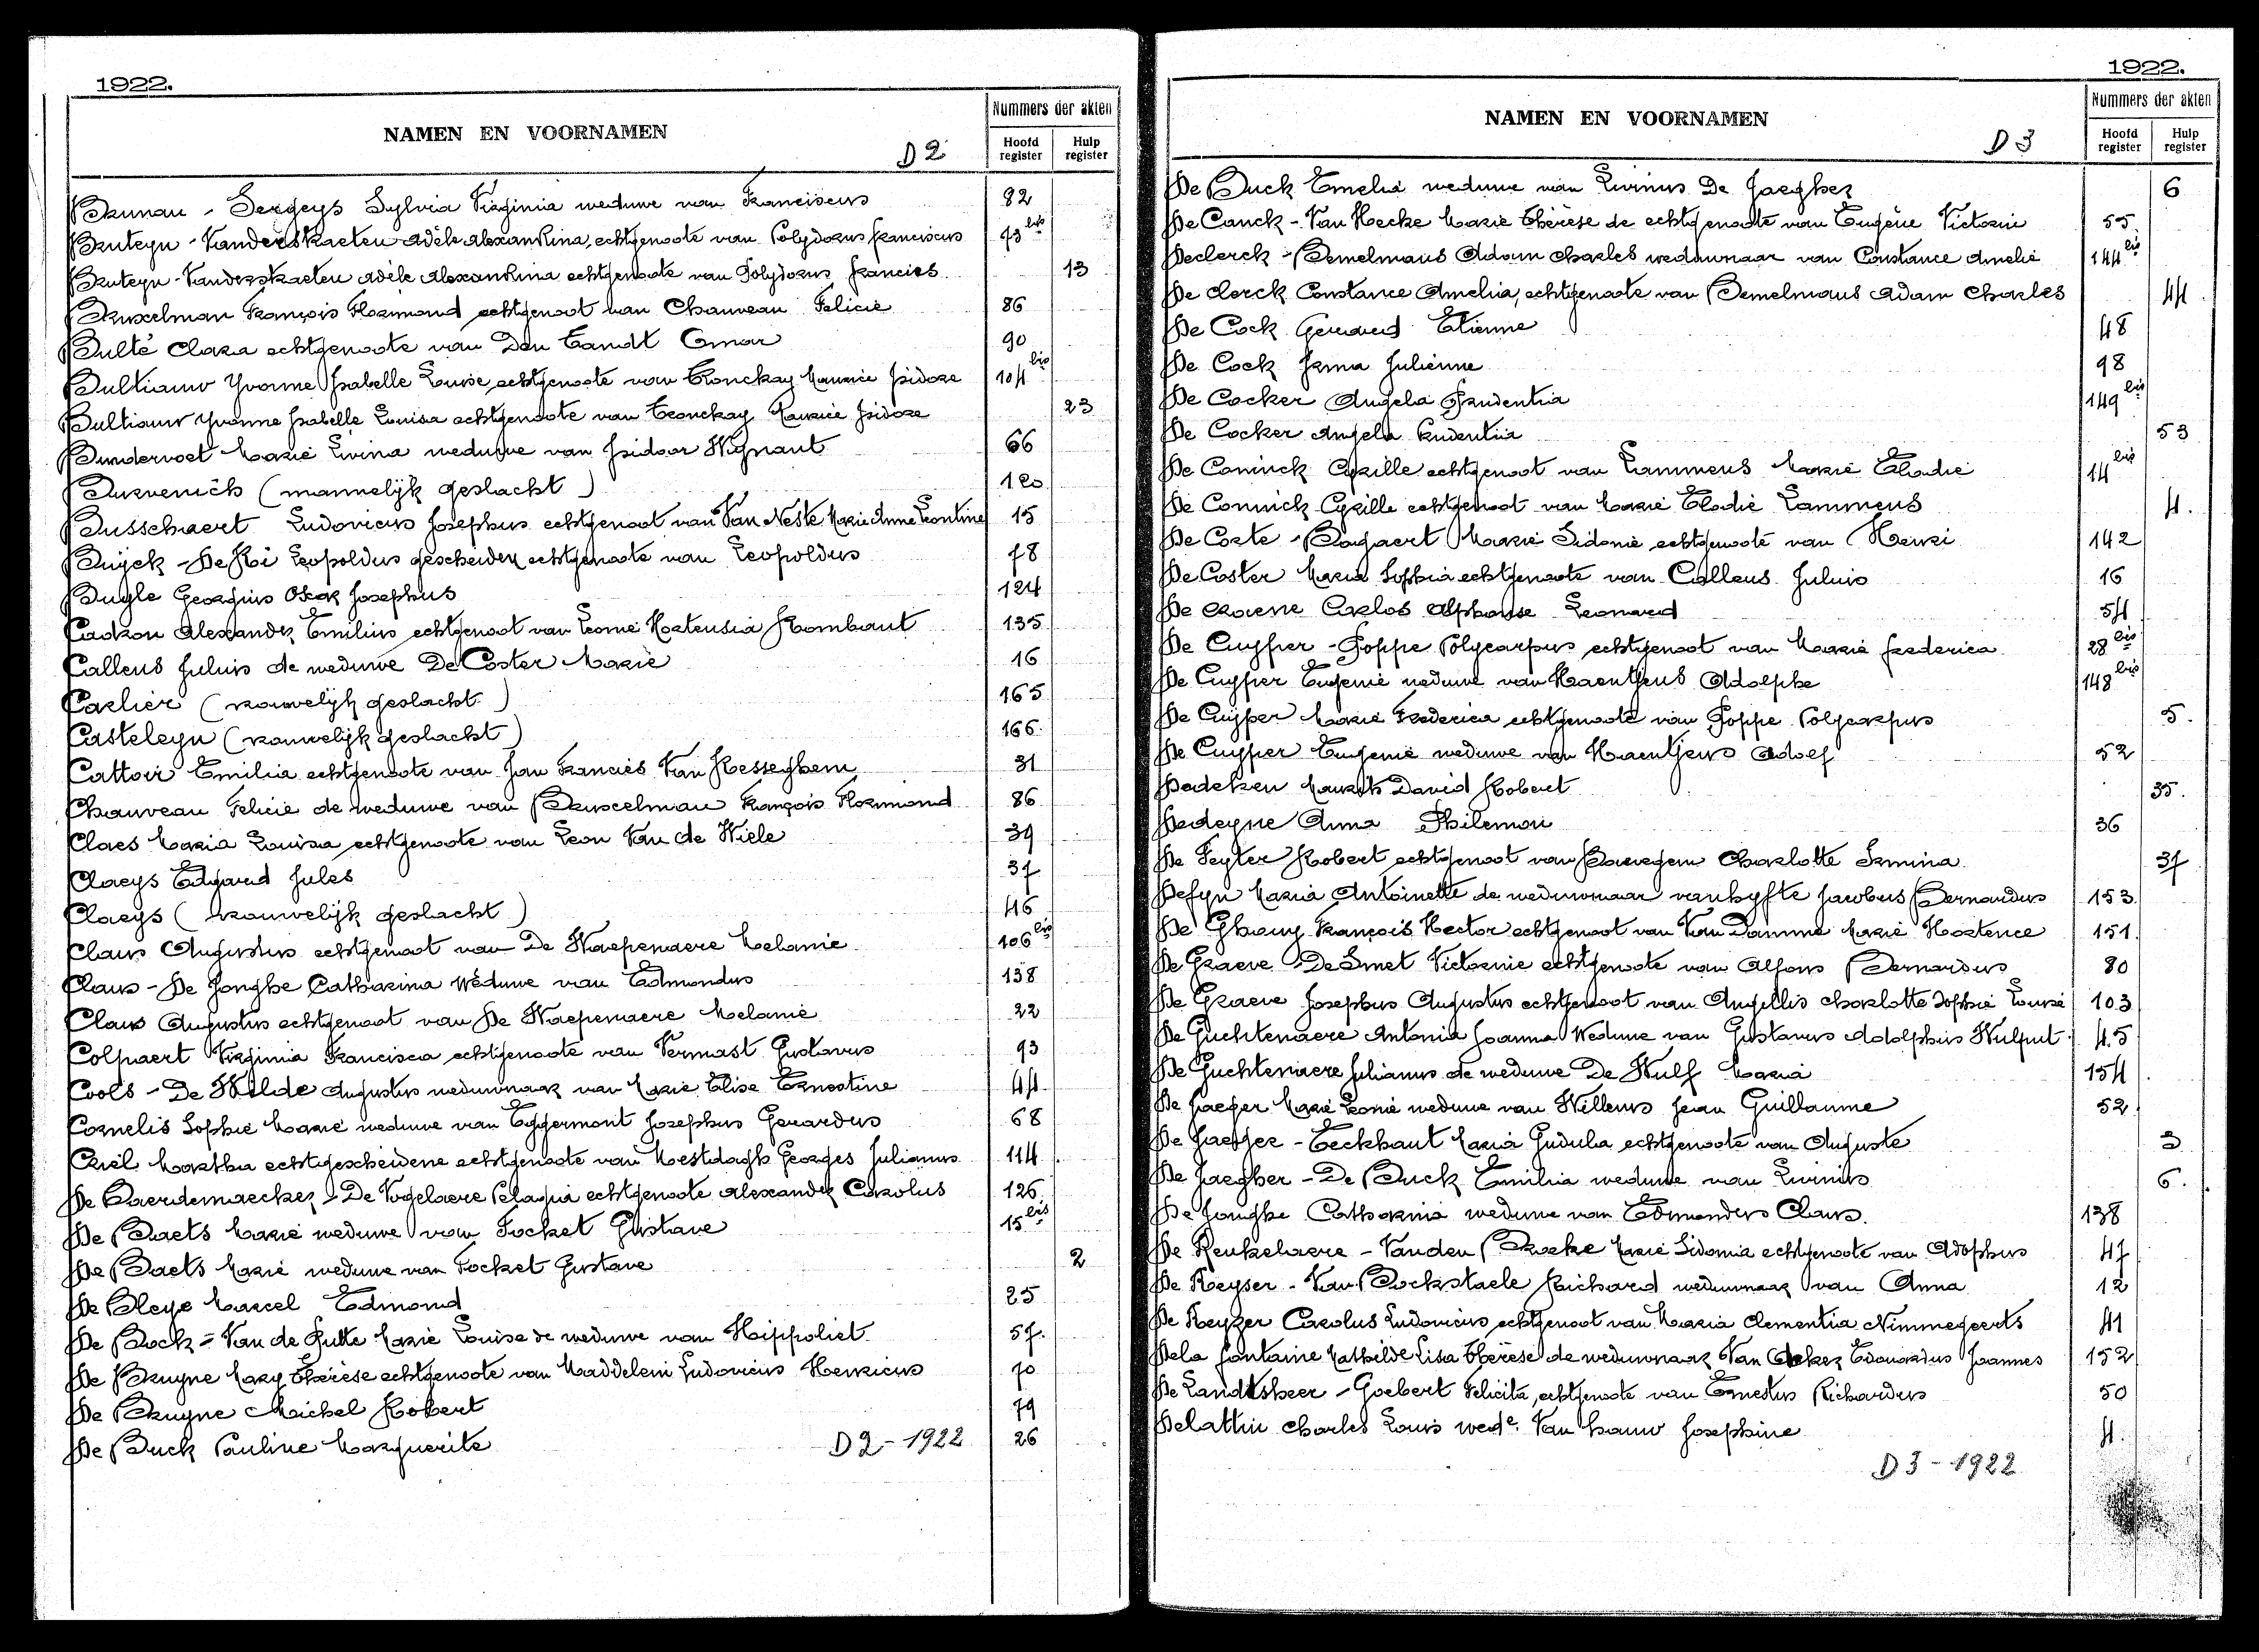 1922.
NAMEN EN VOORNAMEN
D 2
Nummers der akten
Hoofd register
Hulp register
Brunau - Sergeys Sylvia Virginia weduwe van Franciscus 92
Bruteyn - Vanderstraeten Adèle Alexandrina, echtgenoote van Polydorus Franciscus 93 bis
Bruteyn - Vanderstraeten Adèle Alexandrina echtgenoote van Polydorus Francies 13
Bruxelman François Florimond echtgenoot van Chauveau Felicie 86
Bulté Clara echtgenoote van Den Tandt Omar 90
Bultiauw Yvonne Isabelle Louise echtgenoote van Tronckay Maurice Isidore 104 bis
Bultiauw Yvonne Isabelle Louisa echtgenoote van Tronckay Maurice Isidore 23
Bundervoet Marie Livina weduwe van Isidoor Wignant 66
Burvenich (mannelijk geslacht) 120
Busschaert Ludovicus Josephus echtgenoot van Van Neste Marie Anne Leontine 15
Buijck - De Koi Leopoldus gescheiden echtgenoote van Leopoldus 78
Buyle Georgius Oscar Josephus 124
Cadron Alexander Emilius echtgenoot van Leonie Hortensia Rombaut 135
Callens Juluis de weduwe De Coster Marie 16
Carlier (vrouwelijk geslacht) 165
Casteleyn (vrouwelijk geslacht) 166
Cattoir Emilia echtgenoote van Jan Francies Van Hesseghem 31
Chauveau Felicie de weduwe van Bruxcelman François Florimond 86
Claes Maria Louisa echtgenoote van Leon Van de Wiele 39
Claeys Edgard Jules 37
Claeys (vrouwelijk geslacht) 46
Claus Augustus echtgenoot van De Waepenaere Melanie 106 bis
Claus - De Jonghe Catharina Weduwe van Edmondus 138
Claus Augustus echtgenoot van De Waepenaere Melanie 22
Colpaert Virginia Francisca echtgenoote van Vermast Gustavus 93
Cools - De Wilde Augustus weduwnaar van Marie Elise Ernestine 44
Cornelis Sophie Marie weduwe van Eggermont Josephus Gerardus 68
Criel Martha echtgescheidene echtgenoote van Mestdagh Georges Julianus 114
De Baerdemaecker - De Vogelaere Pelagia echtgenoote Alexander Carolus 126
De Baets Marie weduwe van Focket Gustave 15 bis
De Baets Marie weduwe van Focket Gustave 2
De Bleye Marcel Edmond 25
De Bock - Van de Putte Marie Louise de weduwe van Hippoliet 57.
De Bruyne Mary Thérèse echtgenoote van Maddelein Ludovicus Henricus 70
De Bruyne Michel Robert 79
De Buck Pauline Marguerite 26
D 2 - 1922
1922.
NAMEN EN VOORNAMEN
D 3
Nummers der akten
Hoofd register
Hulp register
De Buck Emelia weduwe van Livinus De Jaegher 6
De Canck - Van Hecke Marie Thérèse de echtgenoote van Eugène Victorin 55
Declerck - Bemelmans Adam Charles weduwnaar van Constance Amelie 144 bis
De Clerck Constance Amelia, echtgenoote van Bemelmans Adam Charles 44
De Cock Gerard Etienne 48
De Cock Irma Julienne 98
De Cocker Angela Prudentia 149 bis
De Cocker Angela Prudentia 53
De Coninck Cyrille echtgenoot van Lammens Marie Elodie 14 bis
De Connick Cyrille echtgenoot van Marie Elodie Lammens 4.
De Corte - Bogaert Marie Sidonie echtgenoote van Henri 142
De Coster Maria Sophia echtgenoote van Callens Juluis 16
De Croene Carlos Alphonse Leonard 54
De Cuyper - Poppe Polycarpus echtgenoot van Marie Frederica 28 bis
De Cuyper Eugenie weduwe van Haentjens Adolphe 148 bis
De Cuyper Marie Frederica echtgenoote van Poppe Polycarpus 5.
De Cuyper Eugenie weduwe van Haentjens Adolf 52
Dedeken Maurits David Robert 35.
Dedeyne Anna Philemon 36
De Feyter Robert echtgenoot van Bauwegem Charlotte Irmina 37
Defyn Maria Antoinette de weduwnaar van Hyfte Jacobus Bernardus 153
De Ghouy François Hector echtgenoot van Van Damme Marie Hortence 151.
De Graeve De Smet Victorine echtgenoote van Alfons Bernardus 80
De Graeve Josephus Augustus echtgenoot van Angellis Charlotte Sophie Louise 103
De Guchtenaere Antonia Joanna Weduwe van Gustavus Adolphus Hulput 45
De Guchtenaere Julianus de weduwe De Wulf Maria 154
De Jaeger Marie Leonie weduwe van Willems Jean Guillaume 52
De Jaeger - Eeckhaut Maria Gudula echtgenoote van Auguste 3
De Jaegher - De Buck Emilia weduwe van Livinus 6.
De Jonghe Catharina weduwe van Edmondus Claus. 138
De Keukelaere - Vanden Broeke Marie Sidonia echtgenoote van Adolphus 47
De Keyser - Van Bockstaele Richard weduwnaar van Anna 12
De Keyzer Carolus Ludovicus echtgenoot van Maria Clementia Nimmegeerts 41
Dela fontaine Mathilde Lisa Thérèse de weduwnaar Van Acker Edouardus Joannes 152
De Landtsheer - Goebert Felicita, echtgenoote van Ernestus Richardus 50
Delattin Charles Louis wede. Van Hauw Josephine 4.
D 3 - 1922